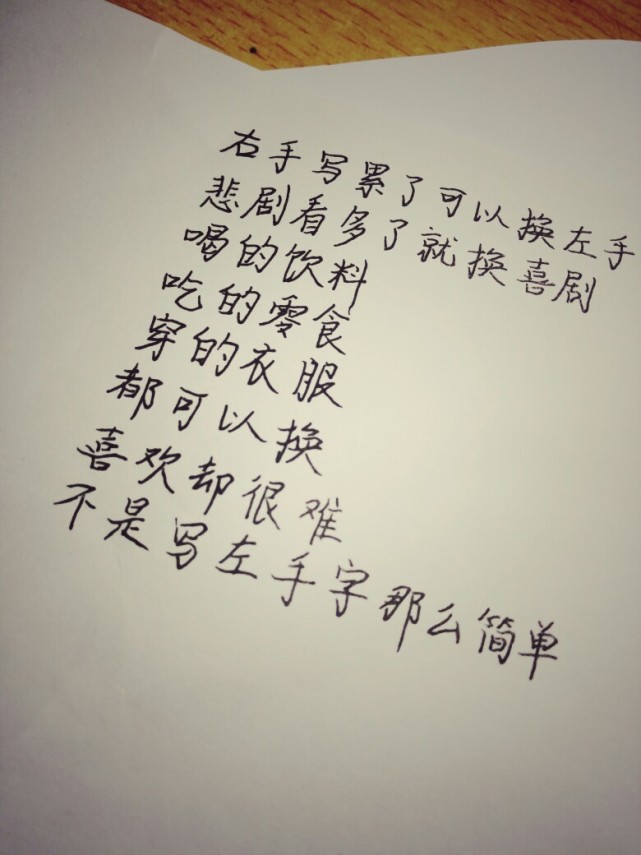 右手写累了可以换左手
悲剧看多了就换喜剧
喝的饮料
吃的零食
穿的衣服
都可以换
喜欢却很难
不是写左手字那么简单